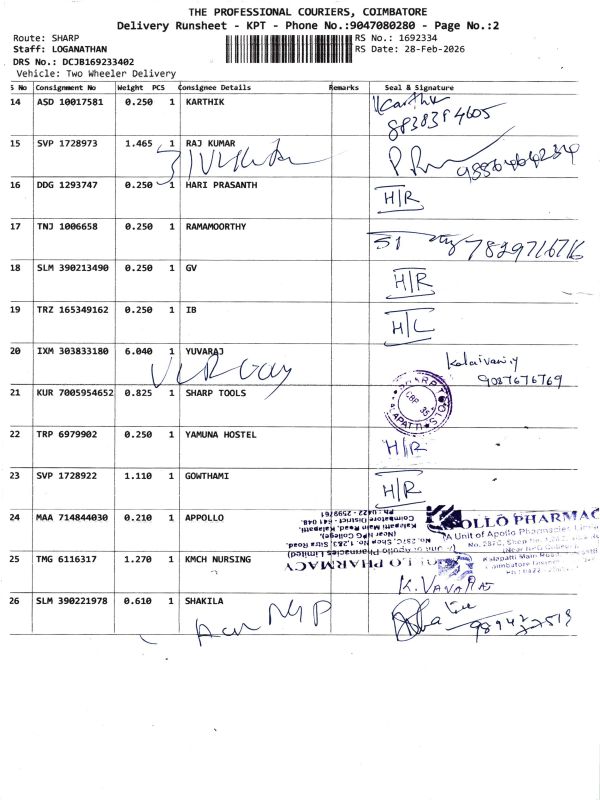 THE PROFESSIONAL COURIERS, COIMBATORE
Delivery Runsheet - KPT - Phone No.:9047080280 - Page No.:2
Route: SHARP
RS No.: 1692334
Staff: LOGANATHAN
RS Date: 28-Feb-2026
DRS No.: DCJB169233402
Vehicle: Two Wheeler Delivery
S No Consignment No Weight PCS Consignee Details Remarks Seal & Signature
14 ASD 10017581 0.250 1 KARTHIK
15 SVP 1728973 1.465 1 RAJ KUMAR
16 DDG 1293747 0.250 1 HARI PRASANTH H/R
17 TNJ 1006658 0.250 1 RAMAMOORTHY 7829716716
18 SLM 390213490 0.250 1 GV H/R
19 TRZ 165349162 0.250 1 IB H/L
20 IXM 303833180 6.040 1 YUVARAJ
9087676769
21 KUR 7005954652 0.825 1 SHARP TOOLS
22 TRP 6979902 0.250 1 YAMUNA HOSTEL H/R
23 SVP 1728922 1.110 1 GOWTHAMI H/R
24 MAA 714844030 0.210 1 APPOLLO
APOLLO PHARMACY
(A Unit of Apollo Pharmacies Limited)
25 TMG 6116317 1.270 1 KMCH NURSING
26 SLM 390221978 0.610 1 SHAKILA